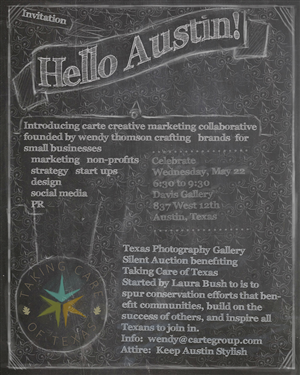 Invitation
Hello Austin!
Introducing carte creative marketing collaborative
founded by wendy thomson crafting brands for
small businesses
marketing non-profits
strategy start ups
design
social media
PR
Celebrate
Wednesday, May 22
6:30 to 9:30
Davis Gallery
837 West 12th
Austin, Texas
Texas Photography Gallery
Silent Auction benefiting
Taking Care of Texas
Started by Laura Bush to is to
spur conservation efforts that ben-
efit communities, build on the
success of others, and inspire all
Texans to join in.
Info: wendy@cartegroup.com
Attire: Keep Austin Stylish
TAKING CARE
OF TEXAS